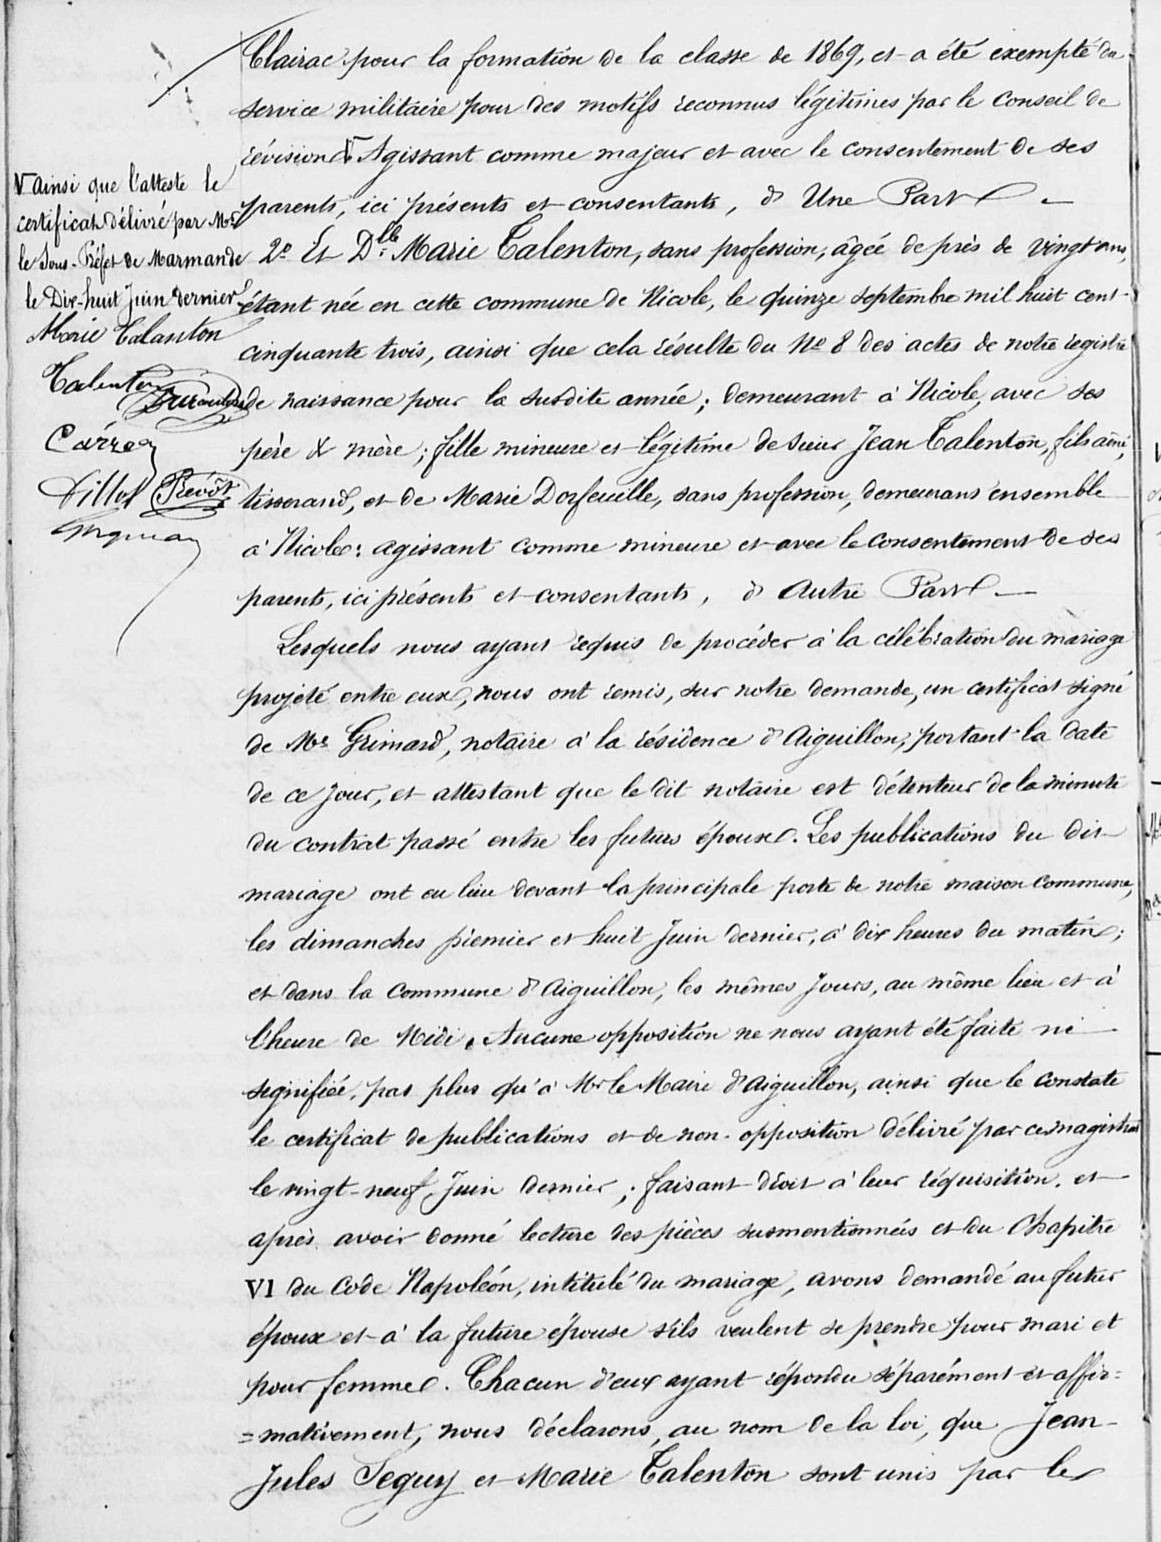 Clairac pour la formation de la classe de 1869, et a été exempté du
service militaire pour des motifs reconnus légitimes par le Conseil de
révision. Agissant comme majeur et avec le consentement de ses
parents, ici présents et consentants, d'Une Part
2º Et Dlle Marie Talenton, sans profession, âgée de près de vingt ans,
étant née en cette commune de Nicole, le quinze septembre mil huit cent
cinquante trois, ainsi que cela résulte du Nº 8 des actes de notre registre
de naissance pour la susdite année ; demeurant à Nicole, avec ses
père & mère ; fille mineure et légitime de sieur Jean Talenton, fils aîné,
tisserand, et de Marie Dorfeuille, sans profession, demeurans ensemble
à Nicole : agissant comme mineure et avec le consentement de ses
parents, ici présents et consentants, d'Autre Part
Lesquels nous ayant requis de procéder à la célébration du mariage
projeté entre eux, nous ont remis, sur notre demande, un certificat signé
de Me Grimard, notaire à la résidence d'Aiguillon, portant la date
de ce jour, et attestant que le dit notaire est détenteur de la minute
du contrat passé entre les futurs époux. Les publications du dit
mariage ont eu lieu devant la principale porte de notre maison commune,
les dimanches premier et huit Juin dernier, à dix heures du matin ;
et dans la commune d'Aiguillon, les mêmes Jours, au même lieu et à
l'heure de Midi. Aucune opposition ne nous ayant été faite ni
signifiée, pas plus qu'à Mr le Maire d'Aiguillon, ainsi que le constate
le certificat de publications et de non-opposition délivré par ce magistrat
le vingt-neuf Juin dernier ; faisant droit à leur réquisition, et
après avoir donné lecture des pièces susmentionnées et du Chapitre
VI du Code Napoléon, intitulé du mariage, avons demandé au futur
époux et à la future épouse s'ils veulent se prendre pour mari et
pour femme. Chacun d'eux ayant répondu séparément et affir=
=mativement, nous déclarons, au nom de la loi, que Jean
Jules Seguy et Marie Talenton sont unis par le
V ainsi que l'atteste le
certificat délivré par Mr
le Sous-Préfet de Marmande
le Dix-huit Juin dernier
Marie Talanton
Talenton
Prévôt